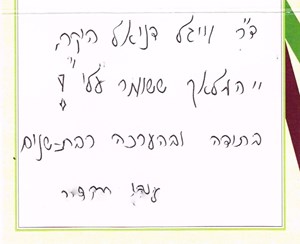 ד"ר ווייגל דניאל היקר,
"המלאך ששומר עליי"
בתודה ובהערכה רבת-שנים